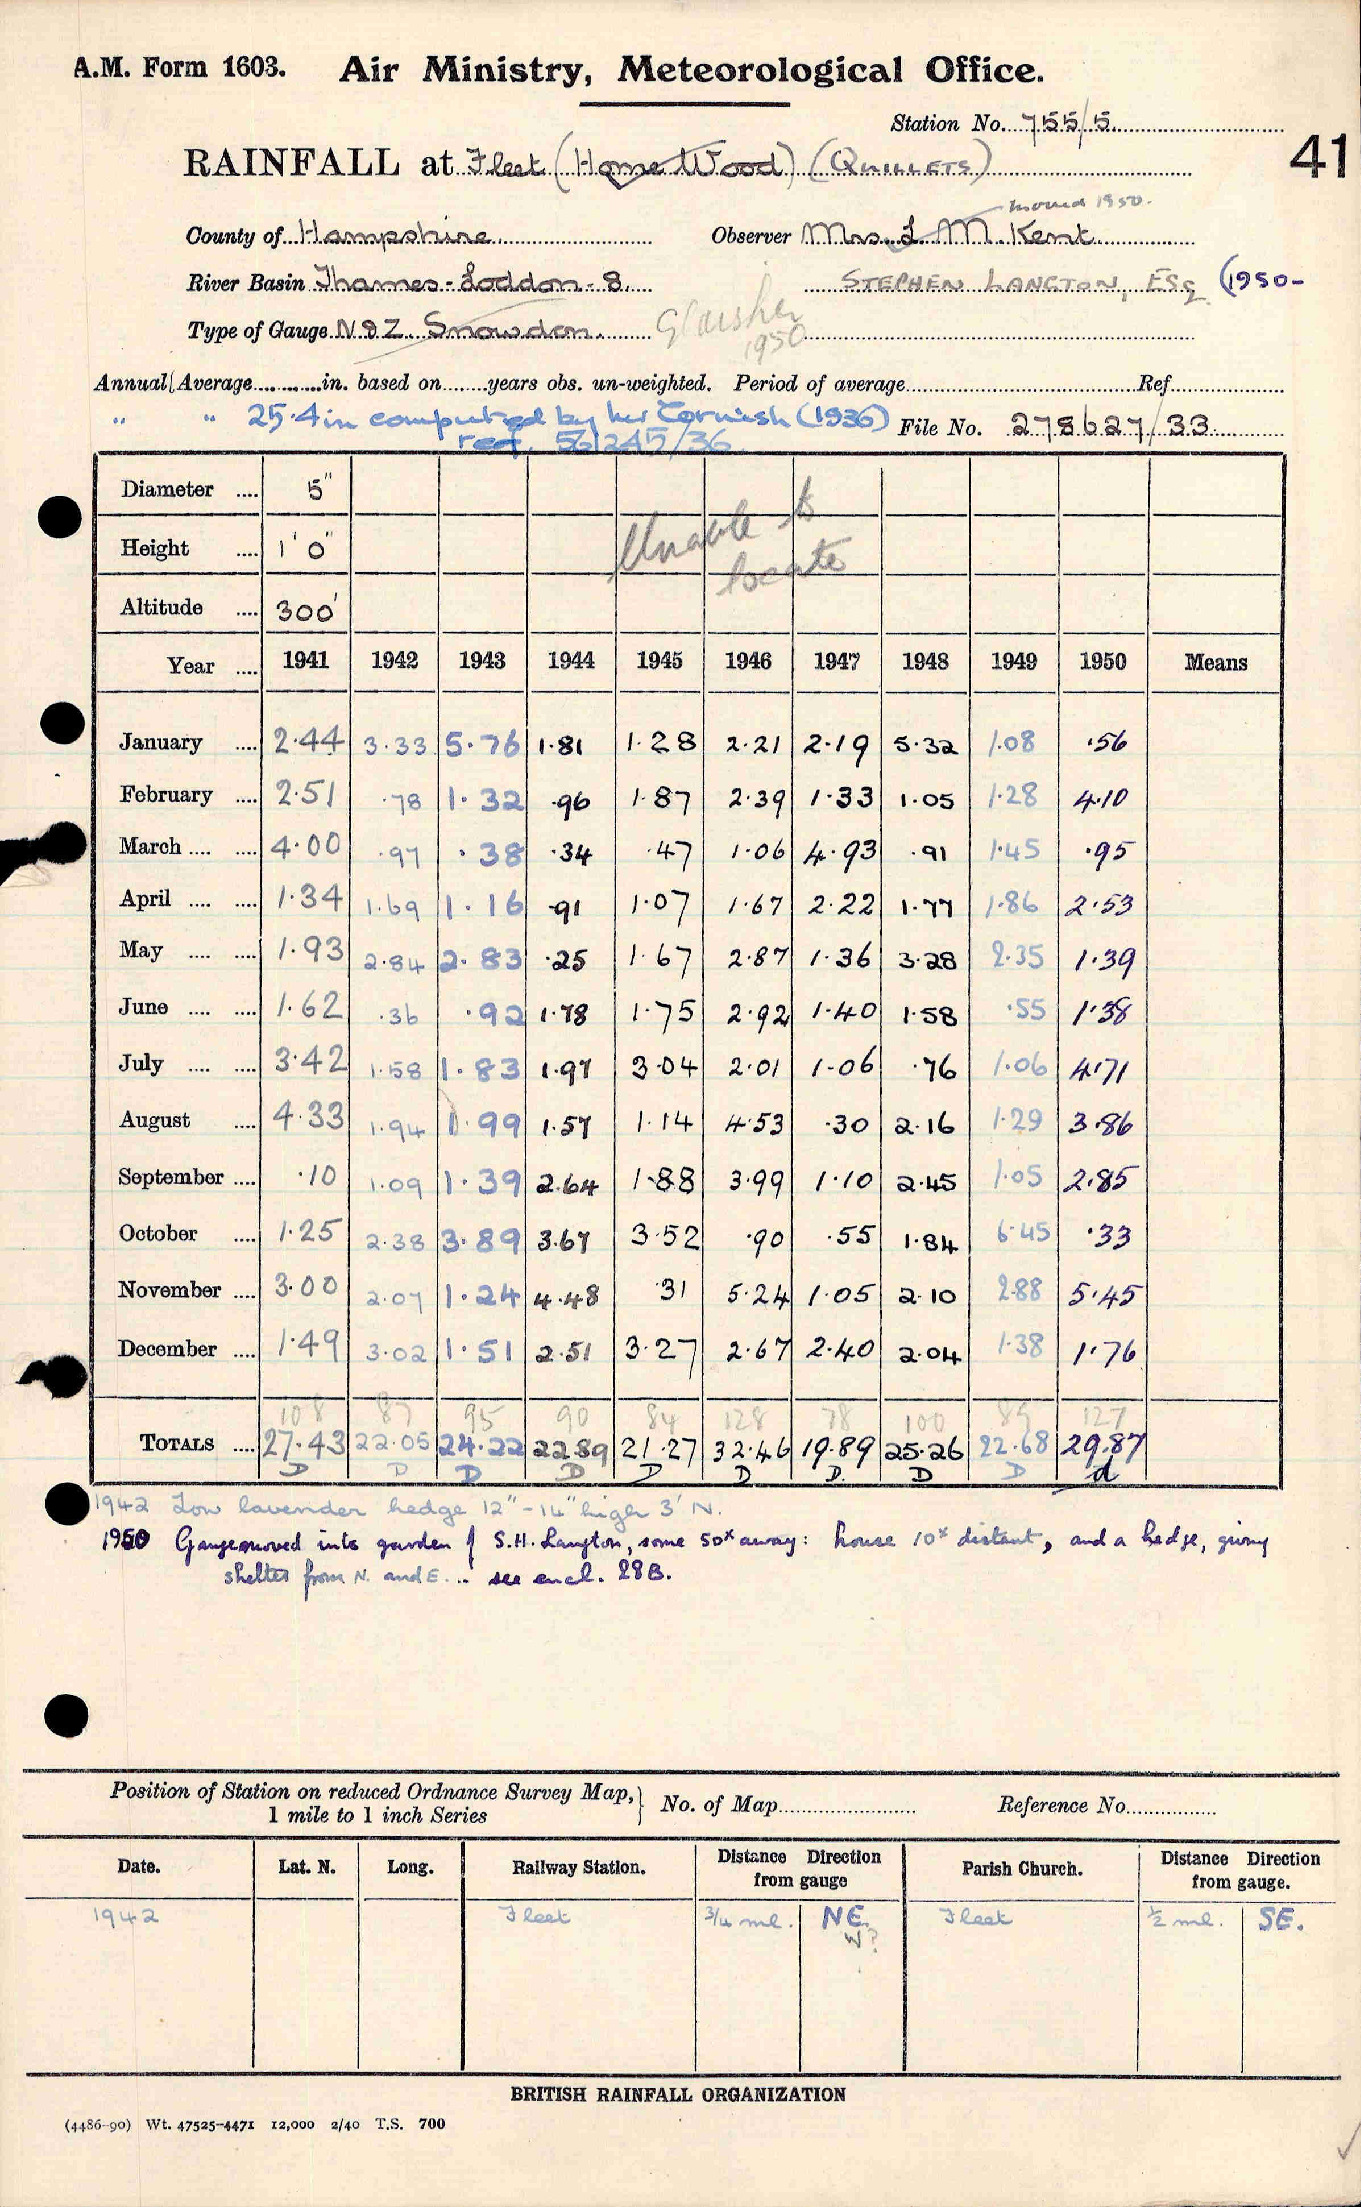 A.M. Form 1603. Air Ministry, Meteorological Office.
Station No. 755/5
41
RAINFALL at Fleet (Home Wood) (QUILLETS)
moved 1950.
County of Hampshire Observer Mrs. L. M. Kent
River Basin Thames-Loddon-8. STEPHEN LANGTON, ESq (1950-
Type of Gauge N & Z Snowdon. Glaisher
1950
Annual Average in. based on years obs. un-weighted. Period of average Ref
" " 25.4 in computed by Cornish (1936) File No. 278627/33
ref. 561245/36
Diameter 5"
Height 1' 0" Unable to
locate
Altitude 300'
Year 1941 1942 1943 1944 1945 1946 1947 1948 1949 1950 Means
January 2.44 3.33 5.76 1.81 1.28 2.21 2.19 5.32 1.08 .56
February 2.51 .78 1.32 .96 1.87 2.39 1.33 1.05 1.28 4.10
March 4.00 .97 .38 .34 .47 1.06 4.93 .91 1.45 .95
April 1.34 1.69 1.16 .91 1.07 1.67 2.22 1.77 1.86 2.53
May 1.93 2.84 2.83 .25 1.67 2.87 1.36 3.28 2.35 1.39
June 1.62 .36 .92 1.78 1.75 2.92 1.40 1.58 .55 1.38
July 3.42 1.58 1.83 1.97 3.04 2.01 1.06 .76 1.06 4.71
August 4.33 1.94 1.99 1.57 1.14 4.53 .30 2.16 1.29 3.86
September .10 1.09 1.39 2.64 1.88 3.99 1.10 2.45 1.05 2.85
October 1.25 2.38 3.89 3.67 3.52 .90 .55 1.84 6.45 .33
November 3.00 2.07 1.24 4.48 .31 5.24 1.05 2.10 2.88 5.45
December 1.49 3.02 1.51 2.51 3.27 2.67 2.40 2.04 1.38 1.76
108 87 95 90 84 128 78 100 89 127
TOTALS 27.43 22.05 24.22 22.89 21.27 32.46 19.89 25.26 22.68 29.87
D D D D D D D. D D d
1942 Low lavender hedge 12" - 14" high 3' N.
1950 Gauge moved into garden of S.H. Langton, some 50x away: house 10x distant, and a hedge, giving
shelter from N. and E... see encl. 28B.
Position of Station on reduced Ordnance Survey Map, } No. of Map Reference No.
1 mile to 1 inch Series
Date. Lat. N. Long. Railway Station. Distance Direction from gauge Parish Church. Distance Direction from gauge.
1942 Fleet 3/4 ml. NE. Fleet 1/2 ml. SE.
W?
BRITISH RAINFALL ORGANIZATION
(4486-90) Wt. 47525-4471 12,000 2/40 T.S. 700